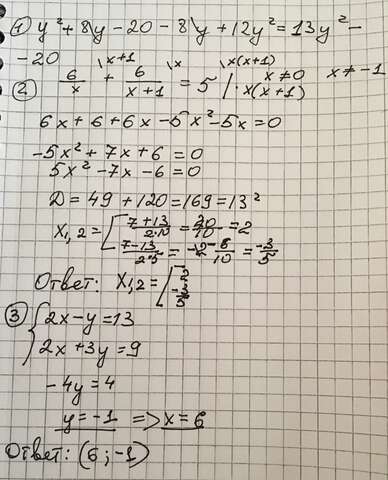 ① y² + 8y - 20 - 8y + 12y² = 13y² -
- 20
② 6/x \x+1 + 6/(x+1) \x = 5 \x(x+1) | · x(x+1) x≠0 x≠-1
6x + 6 + 6x - 5x² - 5x = 0
-5x² + 7x + 6 = 0
5x² - 7x - 6 = 0
D = 49 + 120 = 169 = 13²
X₁,₂ = [ (7+13)/(2·10) = 20/10 = 2
(7-13)/(2·5) = -6/10 = -3/5
Ответ: X₁,₂ = [ 2
-3/5
③ { 2x - y = 13
2x + 3y = 9
- 4y = 4
y = -1 => x = 6
Ответ: (6; -1)